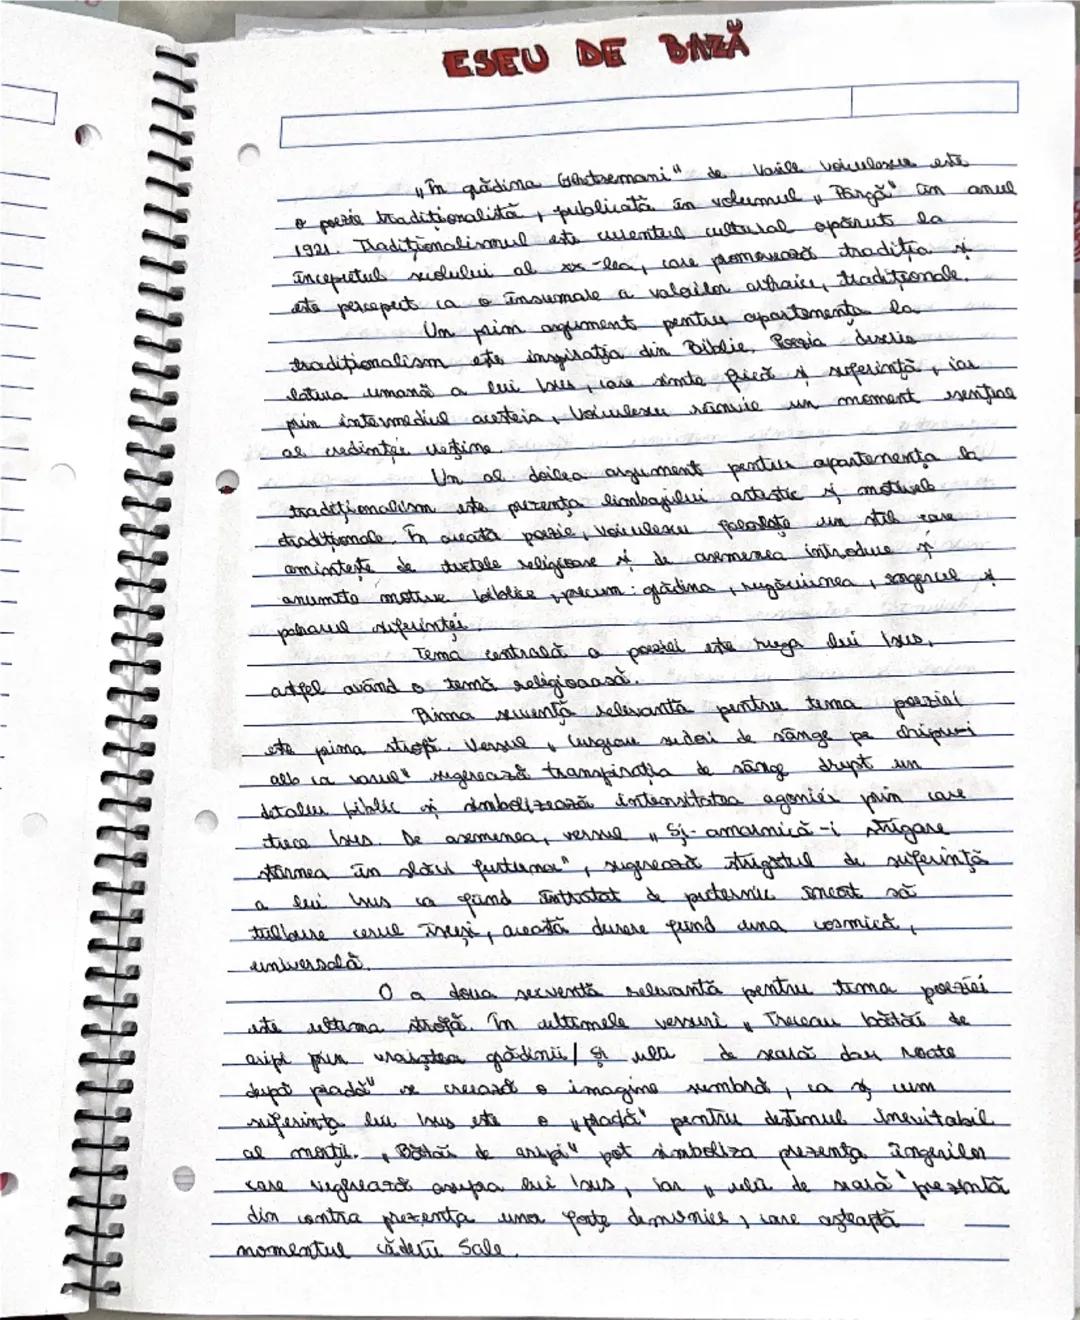 ESEU DE BAZĂ
„În grădina Ghetsemani" de Vasile Voiculescu este
o poezie tradiționalistă, publicată în volumul „Pârgă" în anul
1921. Tradiționalismul este curentul cultural apărut la
începutul secolului al xx-lea, care promovează tradiția și
este perceput ca o însumare a valorilor arhaice, tradiționale.
Un prim argument pentru apartenența la
tradiționalism este inspirația din Biblie. Poezia descrie
latura umană a lui Isus, care simte frică și suferință, iar
prin intermediul acesteia, Voiculescu rescrie un moment esențial
al credinței creștine.
Un al doilea argument pentru apartenența la
tradiționalism este prezența limbajului artistic și motivele
tradiționale. În această poezie, Voiculescu folosește un stil care
amintește de textele religioase și de asemenea introduce și
anumite motive biblice, precum: grădina, rugăciunea, îngerul și
paharul suferinței.
Tema centrală a poeziei este ruga lui Isus,
astfel având o temă religioasă.
Prima secvență relevantă pentru tema poeziei
este prima strofă. Versul „Curgeau sudori de sânge pe chipu-i
alb ca varul" sugerează transpirația de sânge drept un
detaliu biblic și simbolizează intensitatea agoniei prin care
trece Isus. De asemenea, versul „Și-amarnică-i strigare
stârnea în slăvi furtuna", sugerează strigătul de suferință
a lui Isus ca fiind întratat de puternic încât să
tulbure cerul însuși, această durere fiind una cosmică,
universală.
O a doua secventă relevantă pentru tema poeziei
este ultima strofă. În ultimele versuri „Treceau bătăi de
aripi prin vraiștea grădinii/ Și ulii de seară dau roate
după pradă" se creează o imagine sumbră, ca și cum
suferința lui Isus este o „pradă" pentru destinul inevitabil
al morții. „Bătăi de aripi" pot simboliza prezența îngerilor
care veghează asupra lui Isus, iar „ulii de seară" prezintă
din contra prezența unor forțe demonice, care așteaptă
momentul căderii Sale.